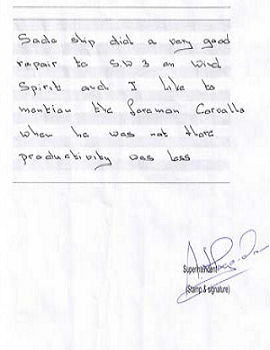 Sada ship did a very good
repair to S.W 3 on Wind
Spirit and I like to
mantion the foraman Corvallo
when he was not there
productivity was less
Superintendent
(Stamp & signature)